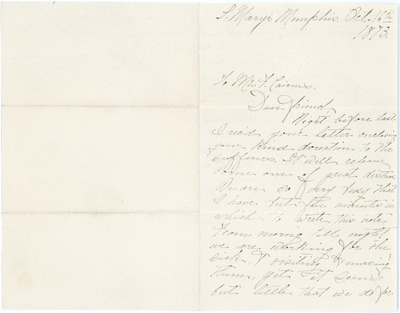 St Mary's Memphis. Oct. 16th
1873.
To Mr. T.
Dear friend,
Night before last
I rec'd your letter enclosing
your kind donation to the
sufferers. It will relieve
some one of great distress
We are so very busy that
I have but few minutes in
which to write this note
From morning till night
we are working for the
sick, & visiting & nursing
them, yet it seems
but little that we do for